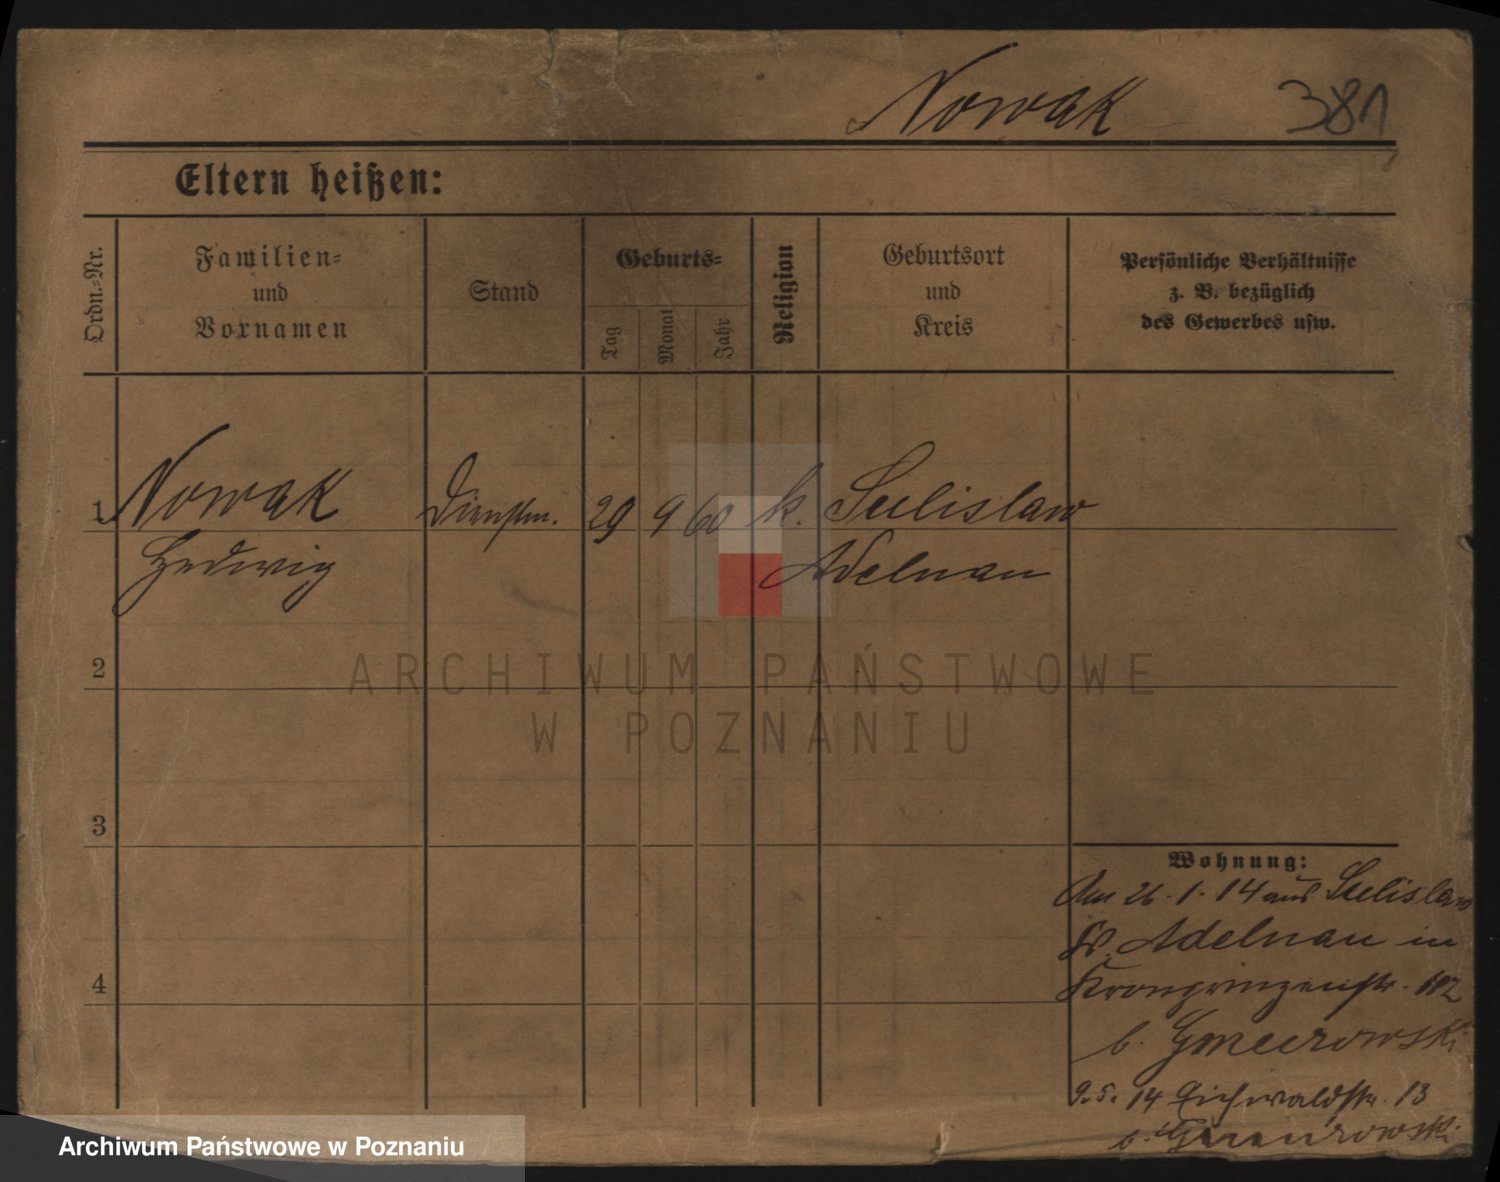 Nowak 381
Eltern heißen:
Ordn.-Nr.
Familien-
und
Vornamen
Stand
Geburts-
Tag
Monat
Jahr
Religion
Geburtsort
und
Kreis
Persönliche Verhältnisse
z. B. bezüglich
des Gewerbes usw.
1 Nowak Dienstm. 29 9 60 k. Sulislaw
Hedwig Adelnau
2
ARCHIWUM PAŃSTWOWE
W POZNANIU
3
Wohnung:
Am 26.1.14 aus Sulislaw
Kr. Adelnau in
4
Kronprinzenstr. 102
b.
9.5.14 Eichwaldstr. 13
b.
Archiwum Państwowe w Poznaniu